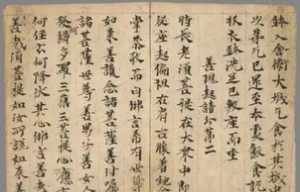 鉢入舍衛大城乞食於其城中
次第乞已還至本處飯食訖
收衣鉢洗足已敷座而坐
善現起請分第二
時長老須菩提在大衆中即
從座起偏袒右肩右膝著
掌恭敬而白佛言希有世
如來善護念諸菩薩善付囑
諸菩薩世尊善男子善女
發耨多羅三藐三菩提心應
何住云何降伏其心佛言善
善哉須菩提如汝所說如來善